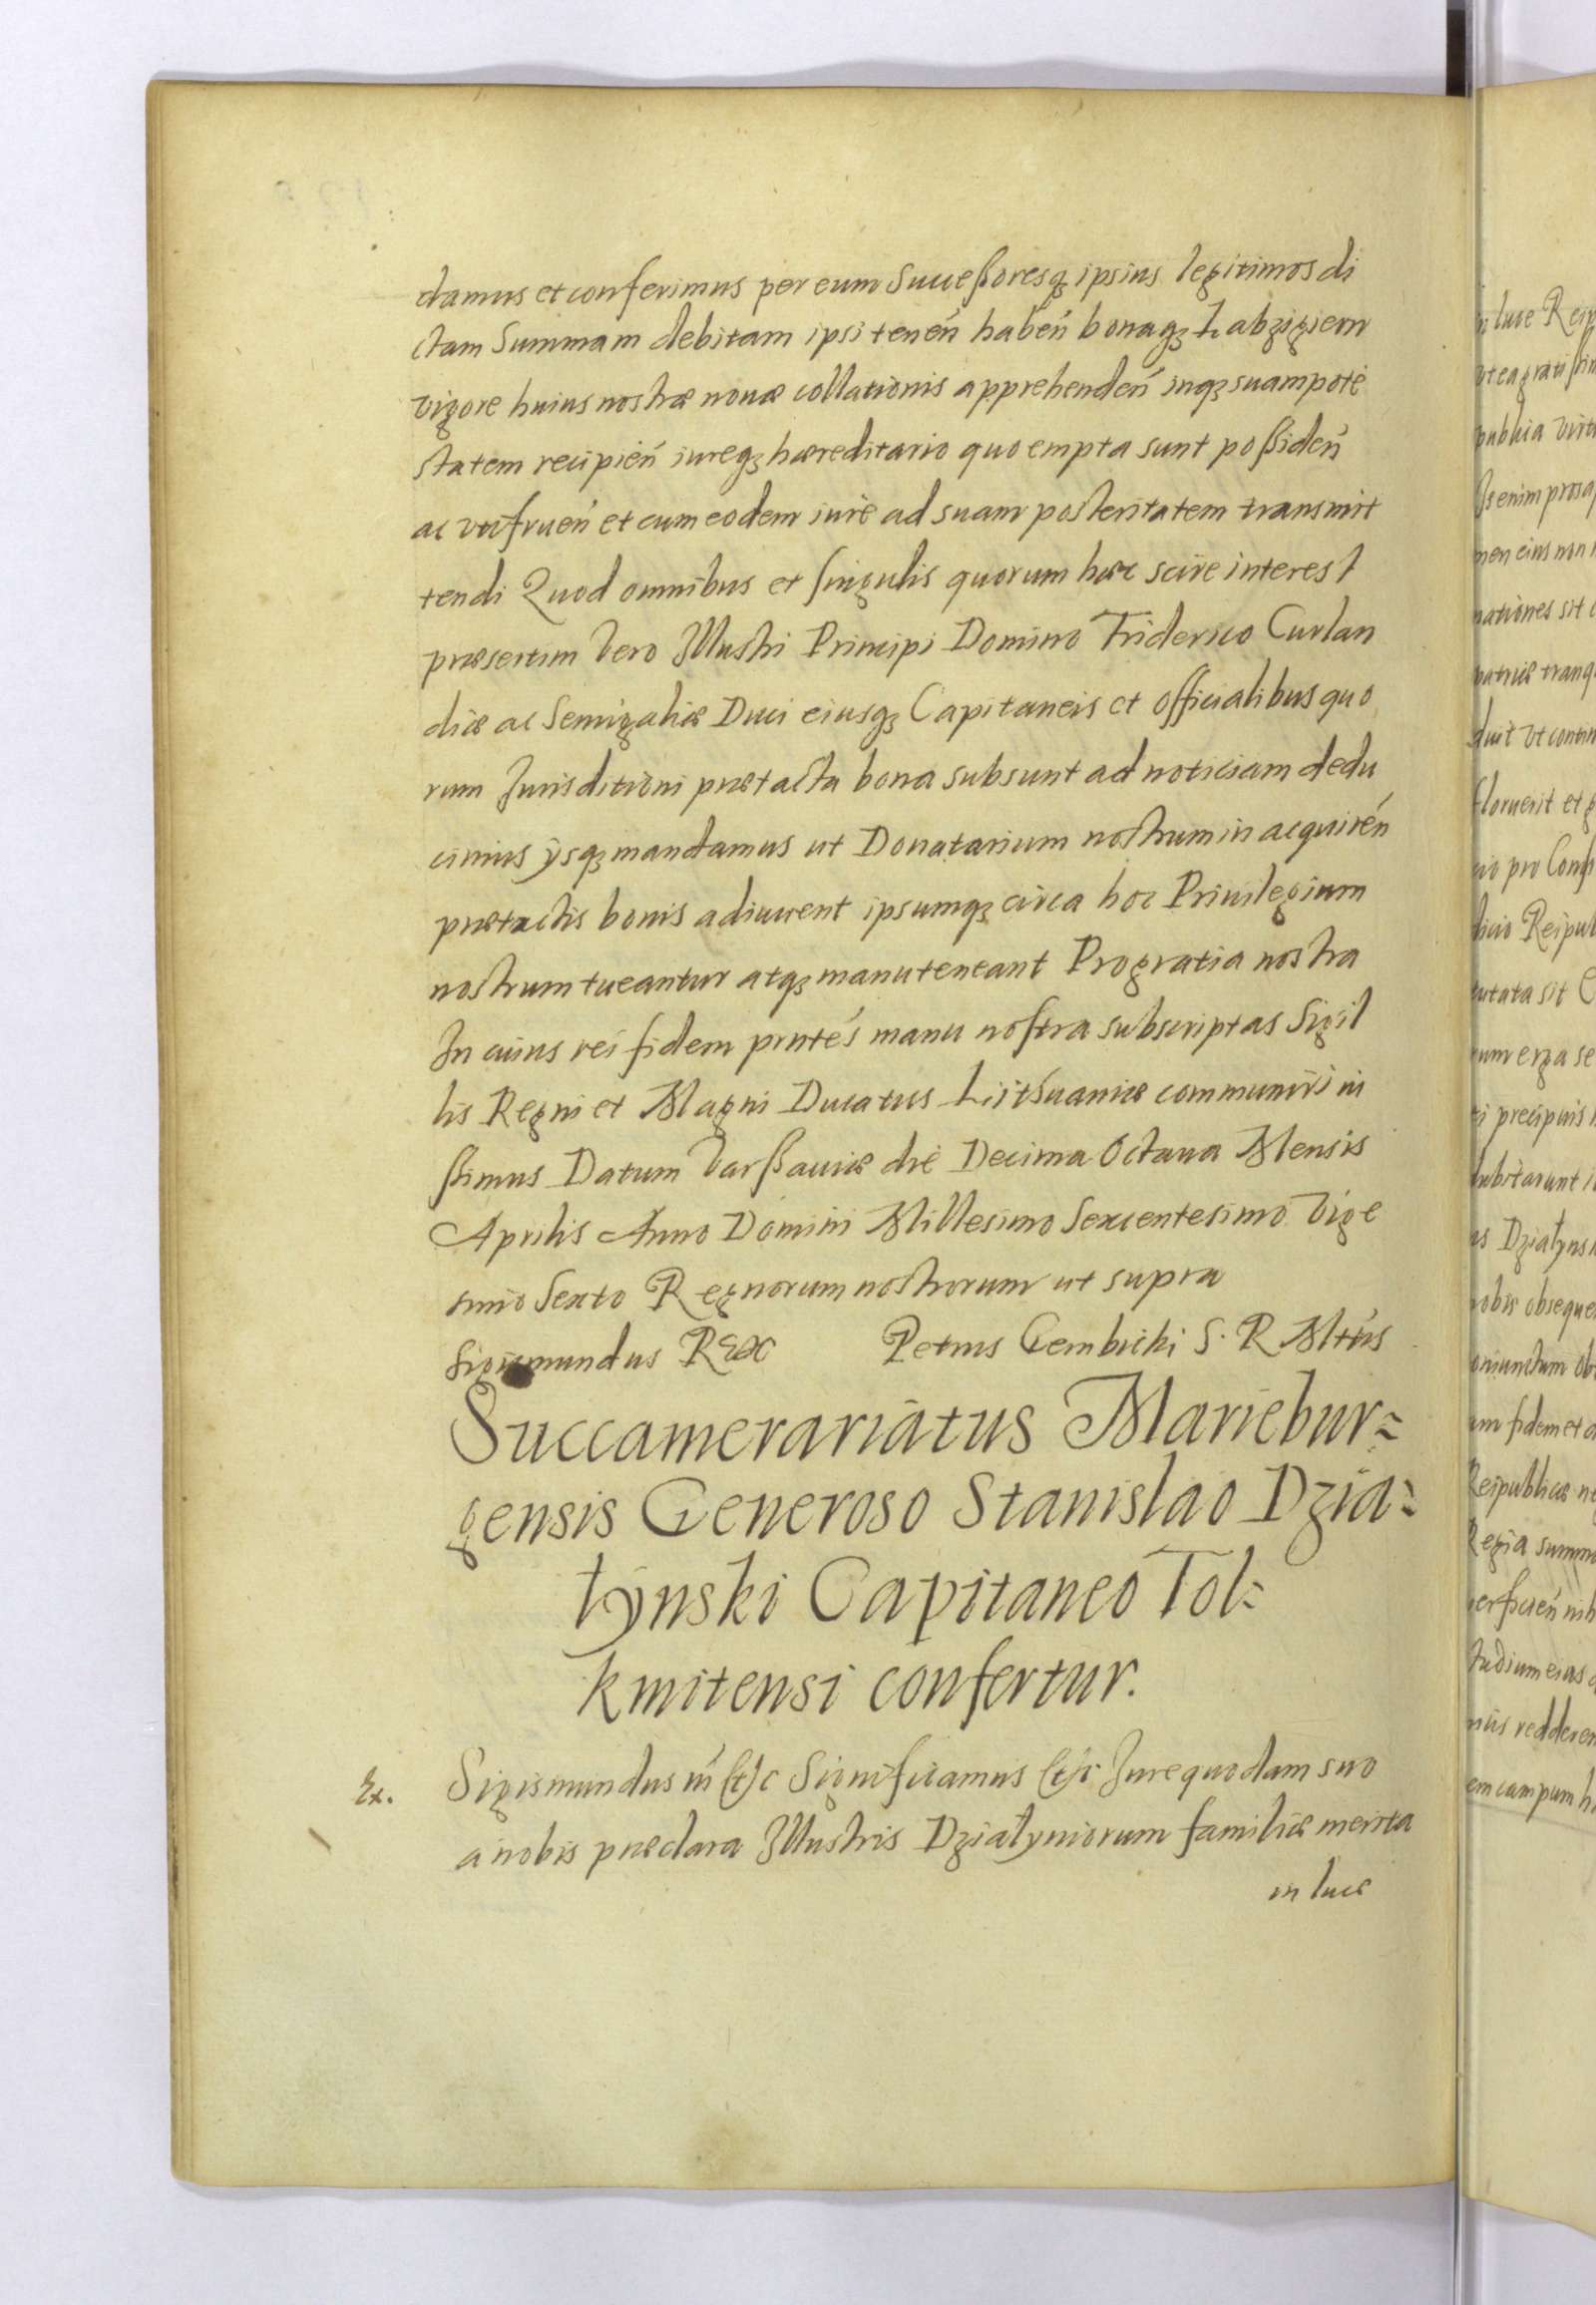 damus et conferimus per eum Successoresq₃ ipsius legitimos di
ctam Summam debitam ipsi tenen̄ haben̄ bonaq₃ Labzigiern
vigore huius nostræ nouæ collationis apprehenden̄ inq₃ suam pote
statem recipien̄ iureq₃ hæreditario quo empta sunt possiden̄
ac utifruen̄ et cum eodem iure ad suam posteritatem transmit
tendi Quod omnibus et singulis quorum hæc scire interest
præsertim vero Illustri Principi Domino Friderico Curlan
diæ ac Semigaliæ Duci eiusq₃ Capitaneis et officialibus quo
rum Jurisditioni prætacta bona subsunt ad noticiam dedu
cimus ÿsq₃ mandamus ut Donatarium nostrum in acquirén
prætactis bonis adiuvent ipsumq₃ circa hoc Priuilegium
nostrum tueantur atq₃ manuteneant Pro gratia nostra
In cuius rei fidem pntés manu nostra subscriptas Sigil
lis Regni et Magni Ducatus Lithuaniæ communiri iu
ssimus Datum Varssauiæ die Decima Octaua Mensis
Aprilis Anno Domini Millesimo Sexcentesimo Vige
simo Sexto Regnorum nostrorum ut supra
Sigismundus Rex Petrus Gembicki S. R Mtús
Succamerariatus Mariebur=
gensis Generoso Stanislao Dzia=
łÿnski Capitaneo Tol=
kmitensi confertur.
Ex. Sigismundus iii (et)c Significamus (et)c Jure quodam suo
a nobis præclara Illustris Działyniorum familiæ merita
in luce
in luce Reip
publica virtu
Is enim prosa
men eius non
nationes sit
patriæ tranq
duit vt contin
floruerit et
licio Reipub
cutata sit
um erga se
ti precipuis
dubitarunt
us Działyns
nobis obseque
oniunctum ob
um fidem et
Reipublicæ ne
Regia summ
studium eius
em campum